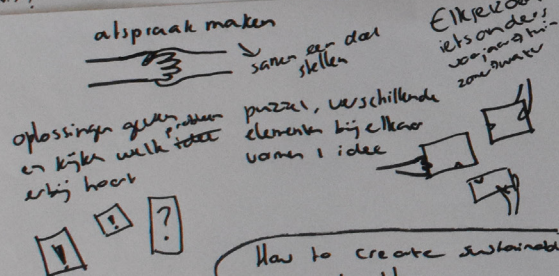 afspraak maken
samen een doel
stellen
iets anders
oplossingen geven
en kijken welk probleem
erbij hoort
puzzel, verschillende
elementen bij elkaar
vormen 1 idee
!
!
?
How to create sustainabl